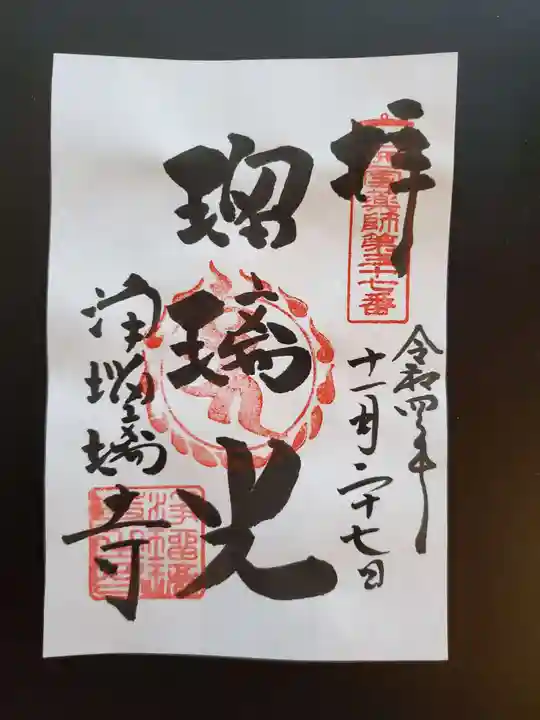 拝
霊薬師第三十七番
令和四年
十一月二十七日
瑠璃光
浄瑠璃寺